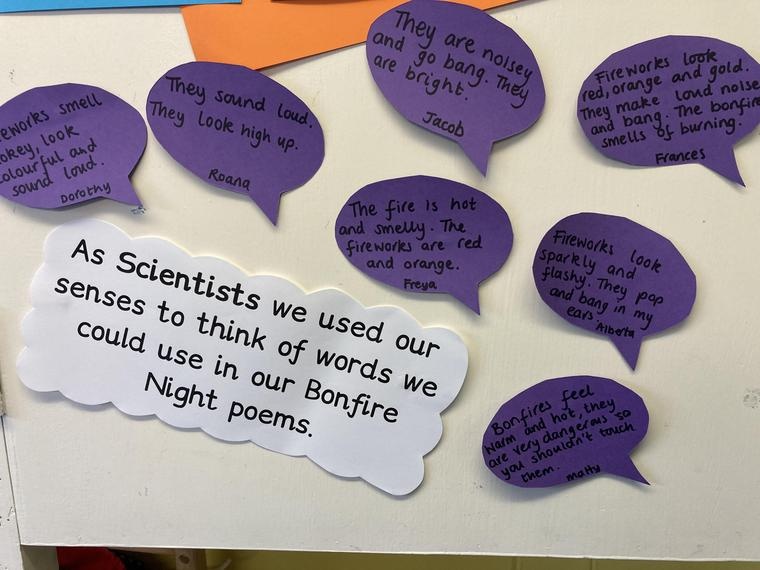 eworks smell
okey, look
olourful and
sound loud.
Dorothy
They sound loud.
They look high up.
Roana
They are noisey
and go bang. They
are bright.
Jacob
Fireworks look
red, orange and gold.
They make loud noise
and bang. The bonfire
smells of burning.
Frances
The fire is hot
and smelly. The
fireworks are red
and orange.
Freya
Fireworks look
sparkly and
flashy. They pop
and bang in my
ears.
Alberta
Bonfires feel
warm and hot, they
are very dangerous so
you shouldn't touch
them.
Matty
As Scientists we used our
senses to think of words we
could use in our Bonfire
Night poems.